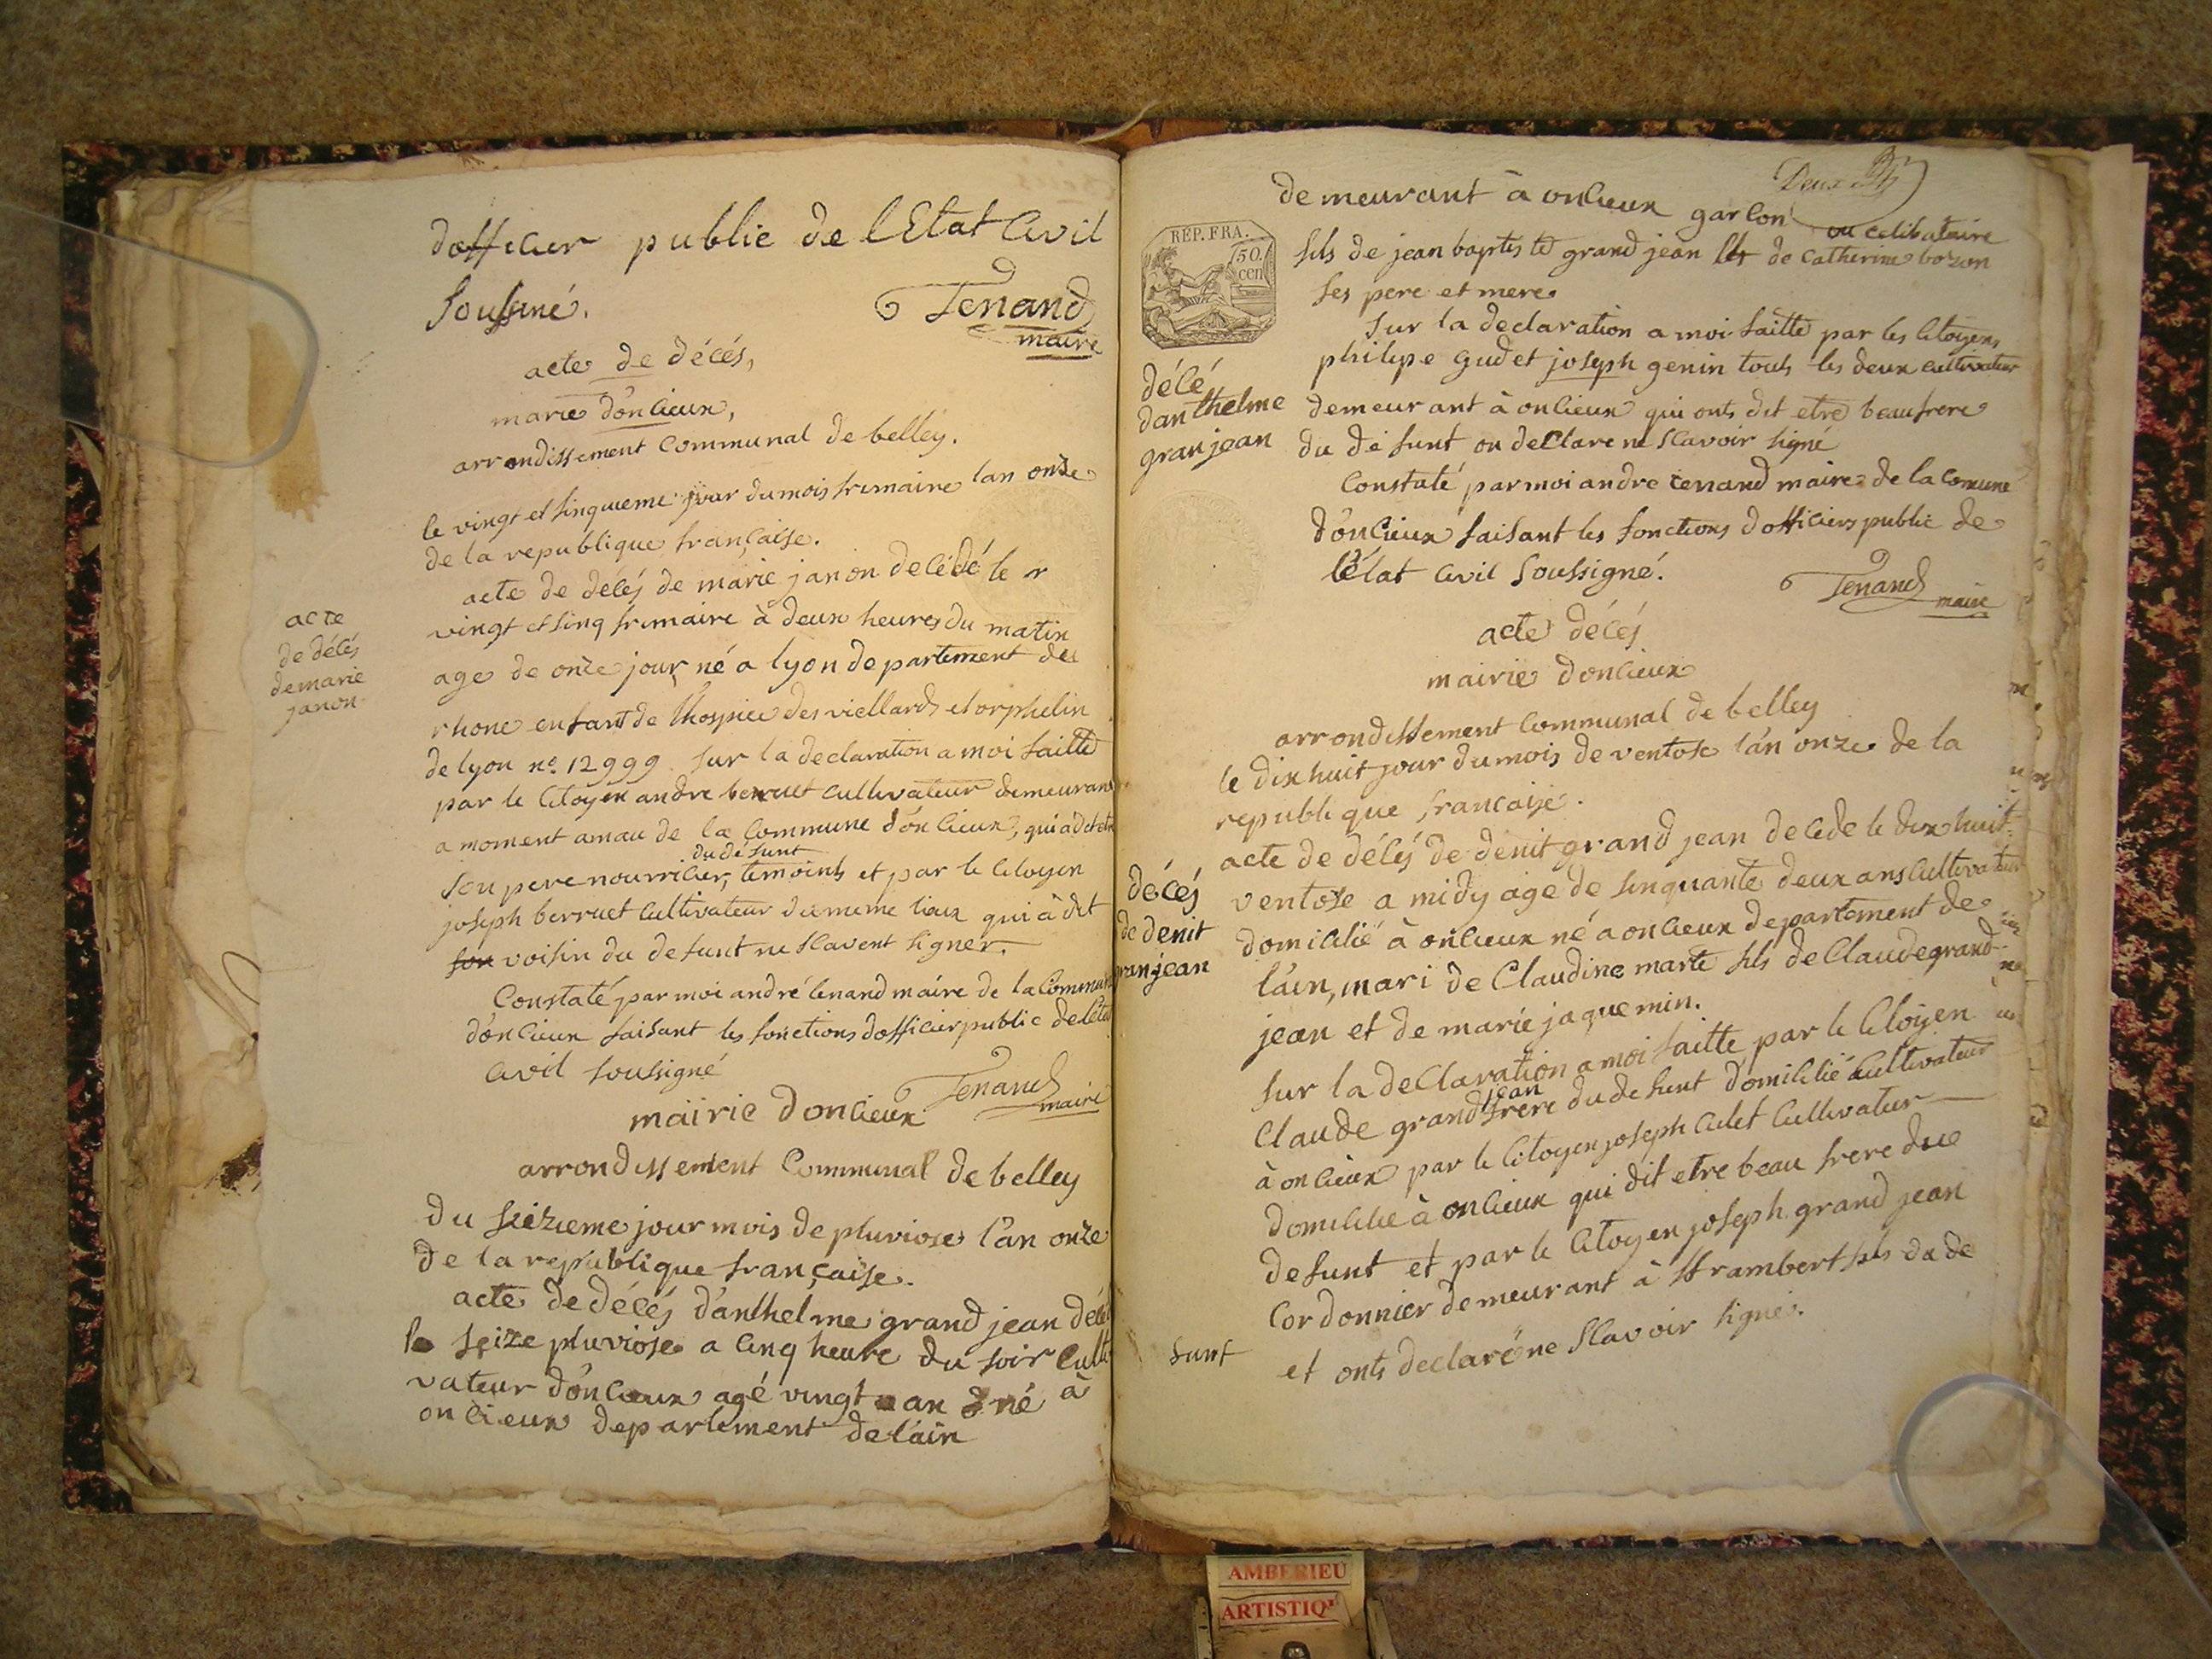 dofficier public de lEtat Civil
Soussiné.
Tenand
maire
acte de décés,
marie dónlieux,
arrondissement Communal de belley.
le vingt et sinquieme jour du mois frimaire lan onze
de la republique française.
acte de décés de marie janon décédé le
vingt et sinq frimaire à deux heures du matin
age de onze jour né a lyon departement du
rhone enfant de lhospice des viellards et orphelin
de lyon nº. 12999 sur la declaration a moi faitte
par le Citoyen andre berruet cultivateur demeurant
a moment amau de la Commune dónlieux, qui a dit etre
du défunt
son pere nourricier, temoints et par le Citoyen
joseph berruet cultivateur du meme lieux qui à dit
son voisin du defunt ne scavent signer.
Constaté par moi andré tenand maire de la Commune
dónlieux faisant les fonctions dofficier public de létat
Civil soussigné
Tenand
maire
acte
de décés
de marie
janon
mairie donlieux
arrondissement Communal de belley
du seizieme jour mois de pluviose lán onze
de la republique française.
acte de décés dánthelme grand jean décédé
le seize pluviose a cinq heure du soir Culti
vateur dónlieux agé vingt an né à
onlieux departement de láin
Deux
demeurant à onlieux garcon ou celibataire
REP. FRA.
50.
cen
fils de jean baptiste grand jean de Catherine bozon
ses pere et mere
Sur la declaration a moi faitte par les Citoyens
philipe Gudet joseph genin touts les deux cultivateur
demeurant à onlieux qui onts dit etre beaufrere
du défunt on declare ne scavoir signé
Constaté par moi andre tenand maire de la Comune
dónlieux faisant les fonctions dofficiers public de
létat Civil soussigné.
Tenand
maire
décé
danthelme
granjean
acte décés
mairie donlieux
arrondissement Communal de belley
le dix huit jour du mois de ventose lán onze de la
republique francaise.
acte de décés de denit grand jean decede le dix huit
ventose a midy age de sinquante deux ans Cultivateur
domicilié à onlieux né a onlieux departement de
láin, mari de Claudine marte fils de Claude grand
jean et de marie jaquemin.
Sur la declaration a moi faitte par le Citoyen
jean
Claude grand frere du defunt domicilié Cultivateur
à onlieux par le Citoyen joseph Culet Cultivateur
domicilié à onlieux qui dit etre beau frere due
defunt et par le Citoyen joseph grand jean
Cordonnier demeurant à St rambert fils du de
funt
et onts declaré ne scavoir signé.
décés
de denit
granjean
AMBERIEU
ARTISTIQ